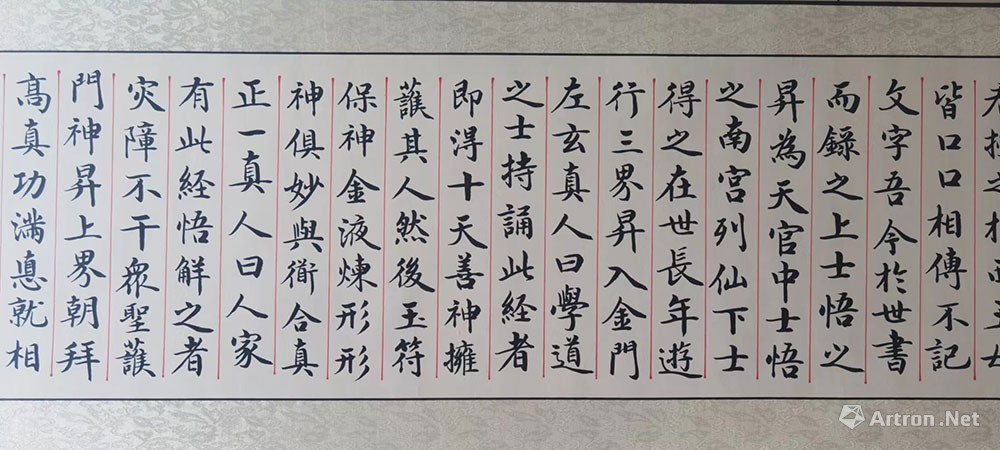 皆口口相傳不記
文字吾今於世書
而錄之上士悟之
昇為天官中士悟
之南宮列仙下士
得之在世長年遊
行三界昇入金門
左玄真人曰學道
之士持誦此経者
即得十天善神擁
護其人然後玉符
保神金液煉形形
神俱妙與衜合真
正一真人曰人家
有此経悟解之者
灾障不干眾聖護
門神昇上界朝拜
髙真功滿悳就相
Artron.Net